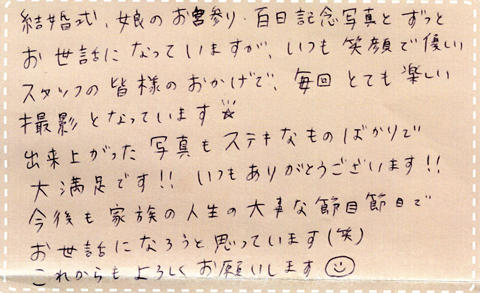 結婚式、娘のお宮参り・百日記念写真とずっと
お世話になっていますが、いつも笑顔で優しい
スタッフの皆様のおかげで、毎回とても楽しい
撮影となっています☆
出来上がった写真もステキなものばかりで
大満足です!! いつもありがとうございます!!
今後も家族の人生の大事な節目節目で
お世話になろうと思っています(笑)
これからもよろしくお願いします☺